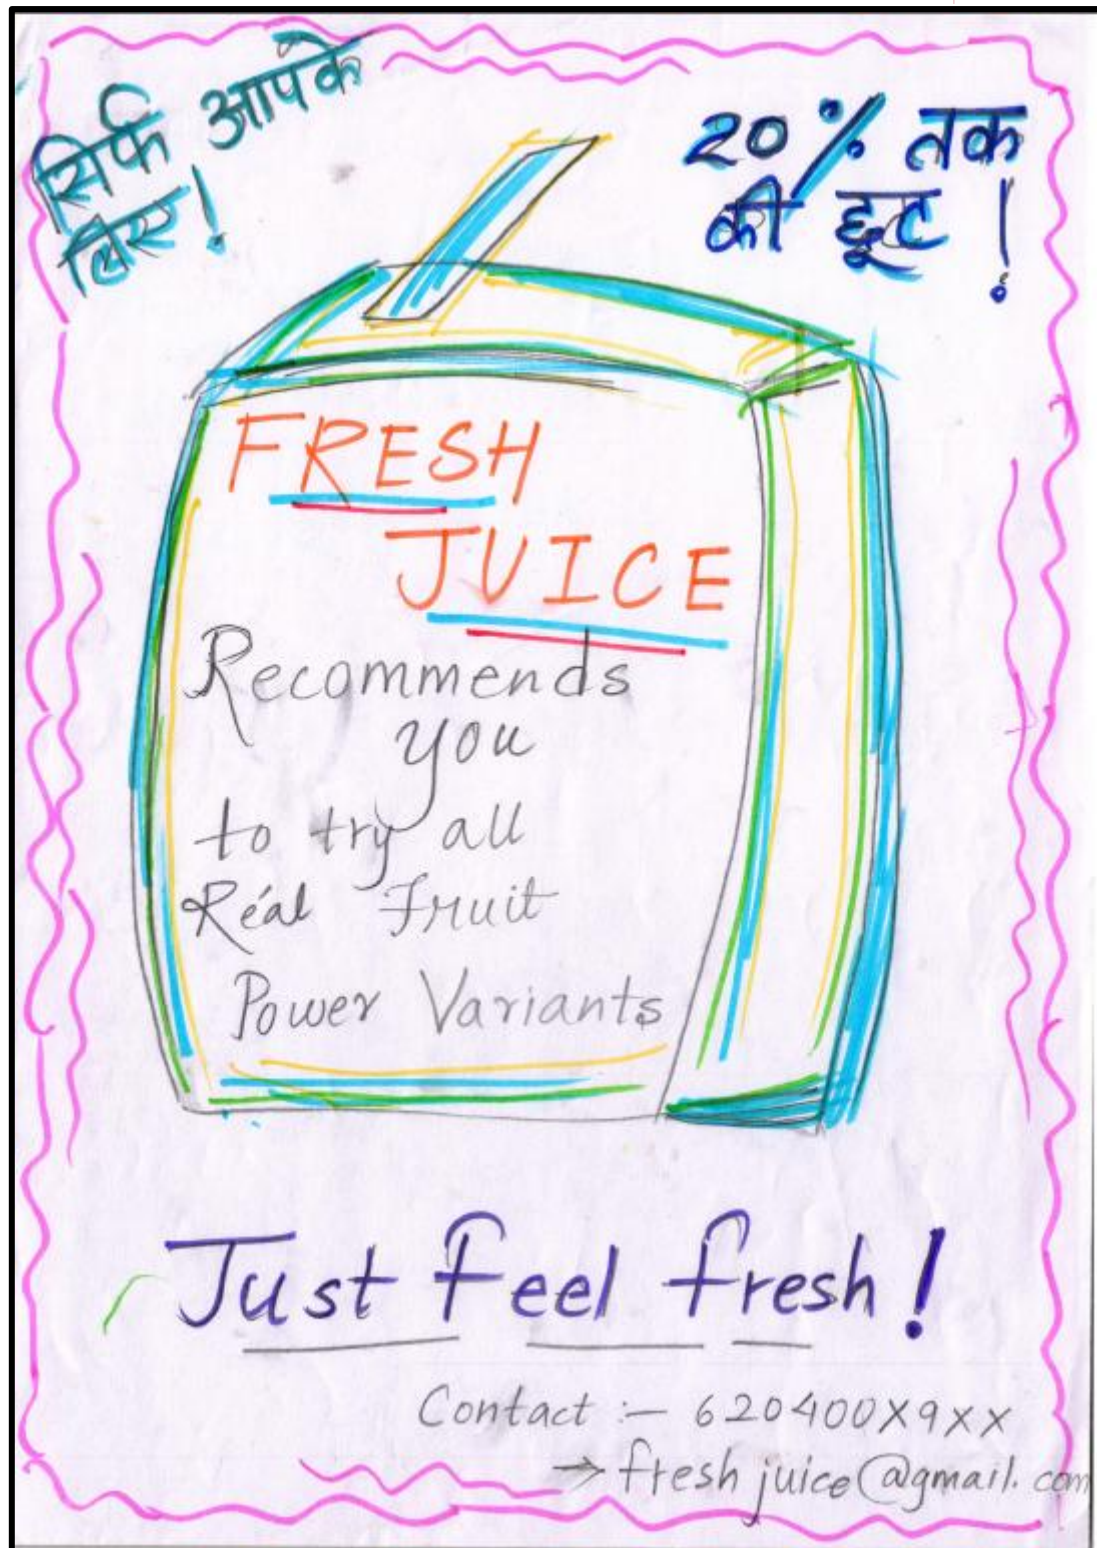 सिर्फ आपके
लिए!
20% तक
की छूट !
FRESH
JUICE
Recommends
you
to try all
Réal Fruit
Power Variants
Just feel fresh!
Contact :– 620400X9XX
→ fresh juice@gmail.com